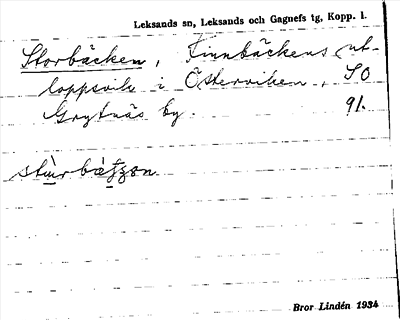 Leksands sn, Leksands och Gagnefs tg, Kopp. l.
Storbäcken, Finnbäckens ut-
loppsvik i Österviken, SO
Grytnäs by. 91.
Bror Lindén 1934